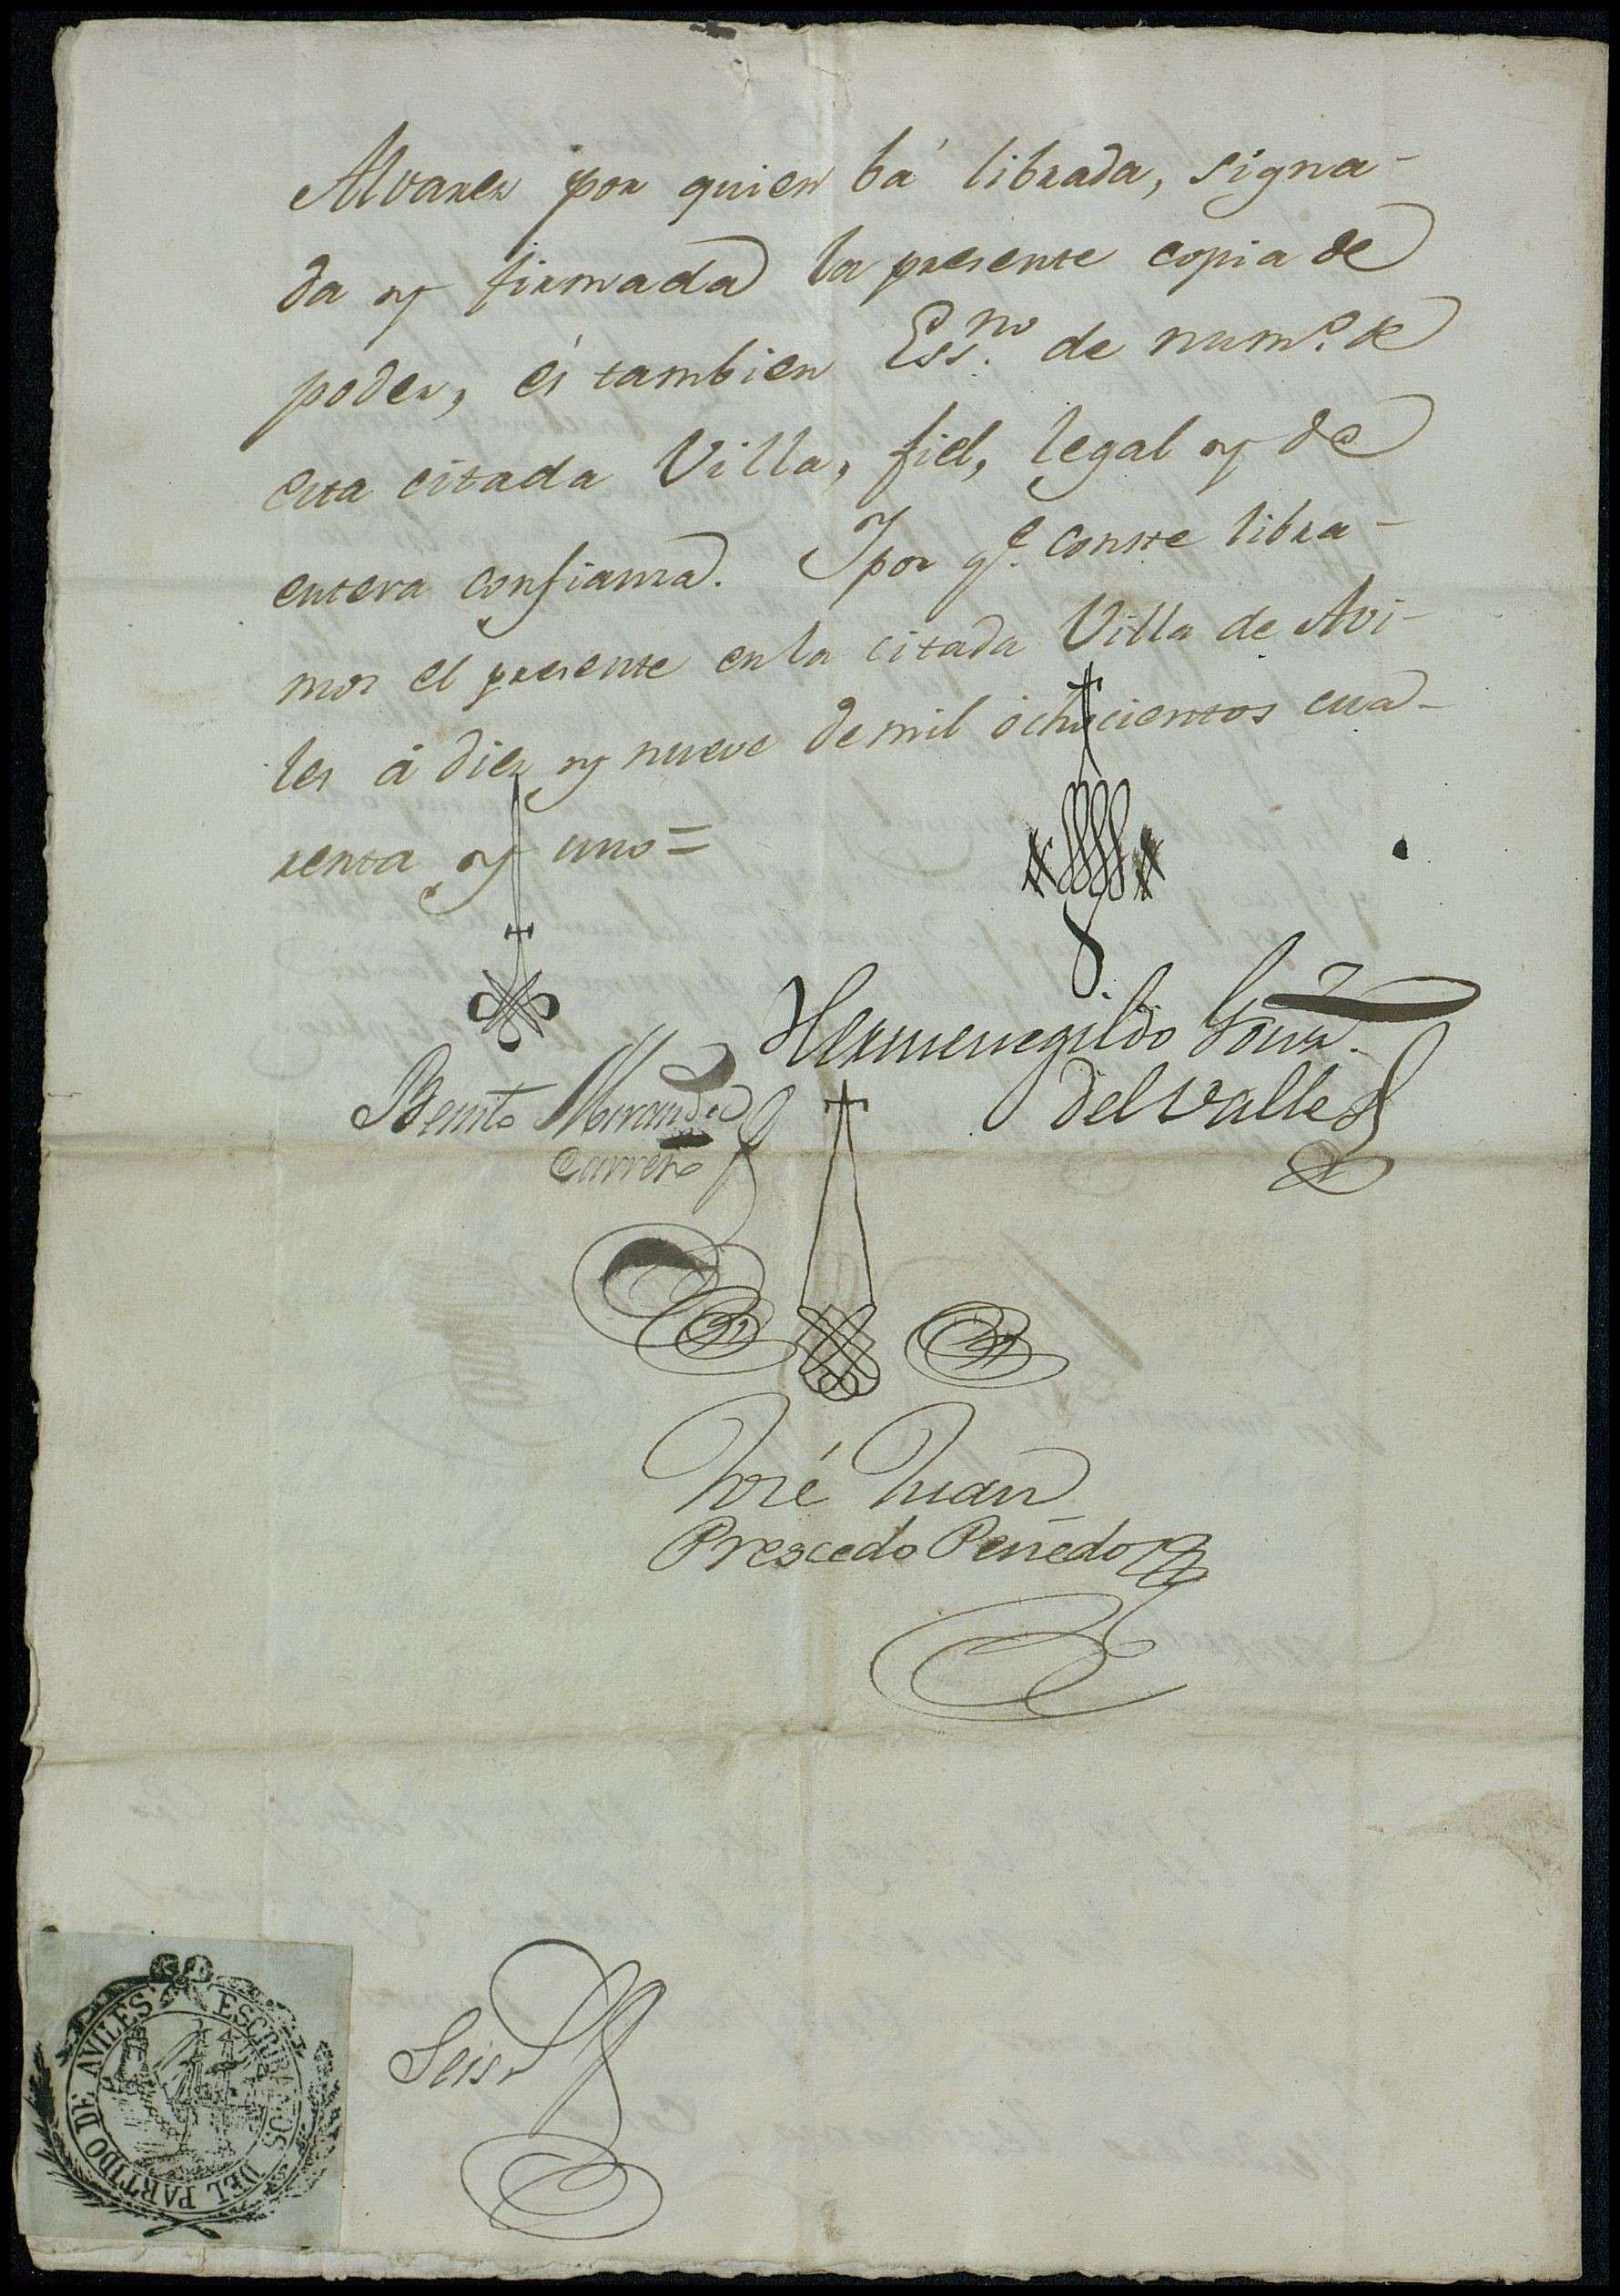 Alvarez por quien bá librada, signa-
da y firmada la presente copia de
poder, és tambien Ess.no de num.o de
esta citada Villa, fiel, legal y de
entera confianza. Y por q.e conste libra-
mos el presente en la citada Villa de Avi-
les á diez y nueve de mil ochocientos cua-
renta y uno=
Hermenegildo Gonz.
del Valle
Benito Miranda
Carreño
José Juan
Prescedo Peñedo
ESCRIBANOS DEL PARTIDO DE AVILES